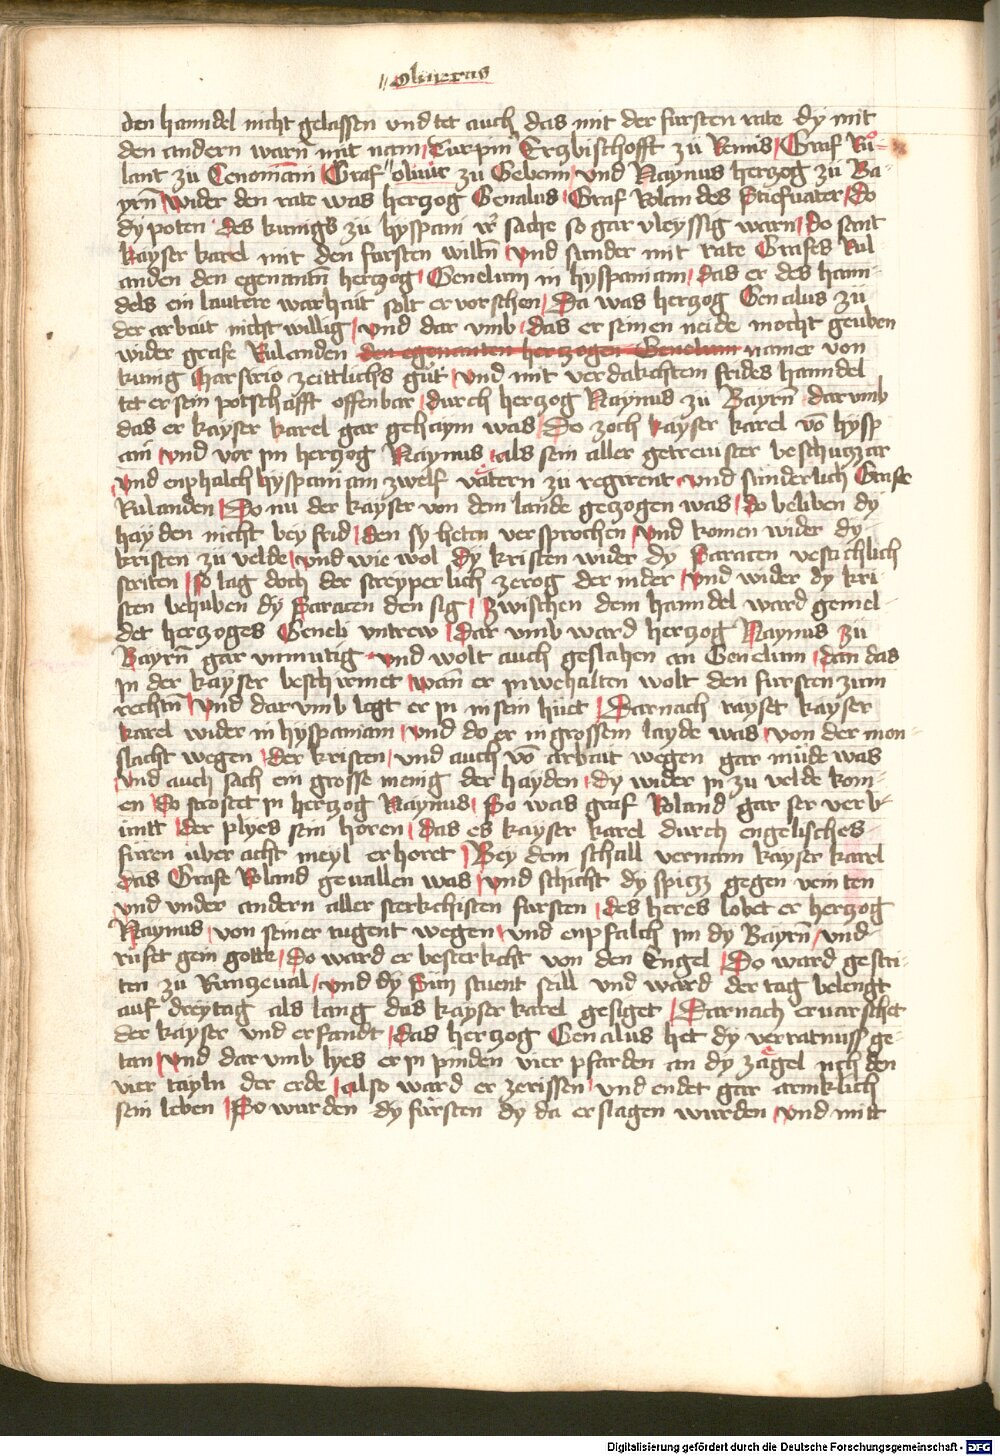 oliuerus
den hanndel nicht gelassen vnd tet auch das mit der fursten rate dy mit
den andern warn̄ mit nam Turpin Erczbischofft zu Remis Graf Rů-
lant zu Cenomam Graf oliuir zu Gebenn vnd Naymus herczog zu Ba-
yrn̄ wider den rate was herczog Genalus Graf Rolandes Stiefuater Do
dy poten des kunigs zu hyspani ir sache so gar vleyssig warn do sant
kayser karel mit den fursten willn̄ vnd sunder mit rate Grafes Rul
anden den egenantn̄ herczog Genelum in hyspaniam das er des hann-
dels ein lautere warhait solt er vorschen Da was herczog Genalus zu
der arbait nicht willig vnd dar vmb das er seinen neide mocht geuben
wider grafe Rulanden den egenanten herczogen Genelum namer von
kunig Marsirio zeittlichs gut vnd mit verdakchtem frides hanndel
tet er sein potschafft offenbar durch herczog Naymus zu Bayrn̄ darvmb
das er kayser karel gar gehaym was Do zoch kayser karel vō hysp
ani vnd vor im herczog Naymus als sein aller getrewister beschuczar
vnd enphalch hyspaniam zwelf vätern zu regirent vnd sunderlich Grafe
Rulanden Do nu der kayser von dem lande geczogen was do beliben dy
hayden nicht bey frid den sy heten versprochen vnd komen wider dy
kristen zu velde vnd wie wol dy kristen wider dy Saracen vestichlich
striten so lag doch der streyperlich zerog der nider vnd wider dy kri-
sten behuben dy Saracen den sig Zwischen dem hanndel ward gemel-
det herczoges Geneli vntrew Dar vmb ward herczog Naymus zu
Bayrn̄ gar vnmutig vnd wolt auch geslahen an Genelum dan das
in der kayser beschirmet wan er in wehalten wolt den fursten zum
rechtn̄ vnd darvmb legt er in in sein huet Darnach rayset kayser
karel wider in hyspaniam vnd do er in grossem layde was von der man-
slacht wegen der kristen vnd auch vō arbait wegen gar müde was
vnd auch sach ein grosse menig der hayden dy wider in zu velde kom-
en So trostet in herczog Naymus So was graf Roland gar ser verb-
unt der plyes sein horen das es kayser karel durch engelisches
füren uber acht meyl erhoret Bey dem schall vernam kayser karel
das Grafe Roland geuallen was vnd schicht dy spicz gegen veinten
vnd vnder andern aller sterkchisten fursten des heres lobet er herczog
Naymus von seiner tugent wegen vnd enpfalch im dy Bayrn̄ vnd
rüfet gein gotte Do ward er besterkcht von den Engel Do ward gestri-
ten zu Runczeual vnd dy Sun stuent still vnd ward der tag belengt
auf dreytag als lang das kayser karel gesiget Darnach eruarschet
der kayser vnd erfandt das herczog Genalus het dy verratnuss ge-
tan vnd dar vmb lyes er in pinden vier pfarden an dy zägel nch den
vier tayln der erde also ward er zerissen vnd endet gar armklich
sein leben So wurden dy fürsten dy da erslagen wurden vnd mitt
Digitalisierung gefördert durch die Deutsche Forschungsgemeinschaft - DFG